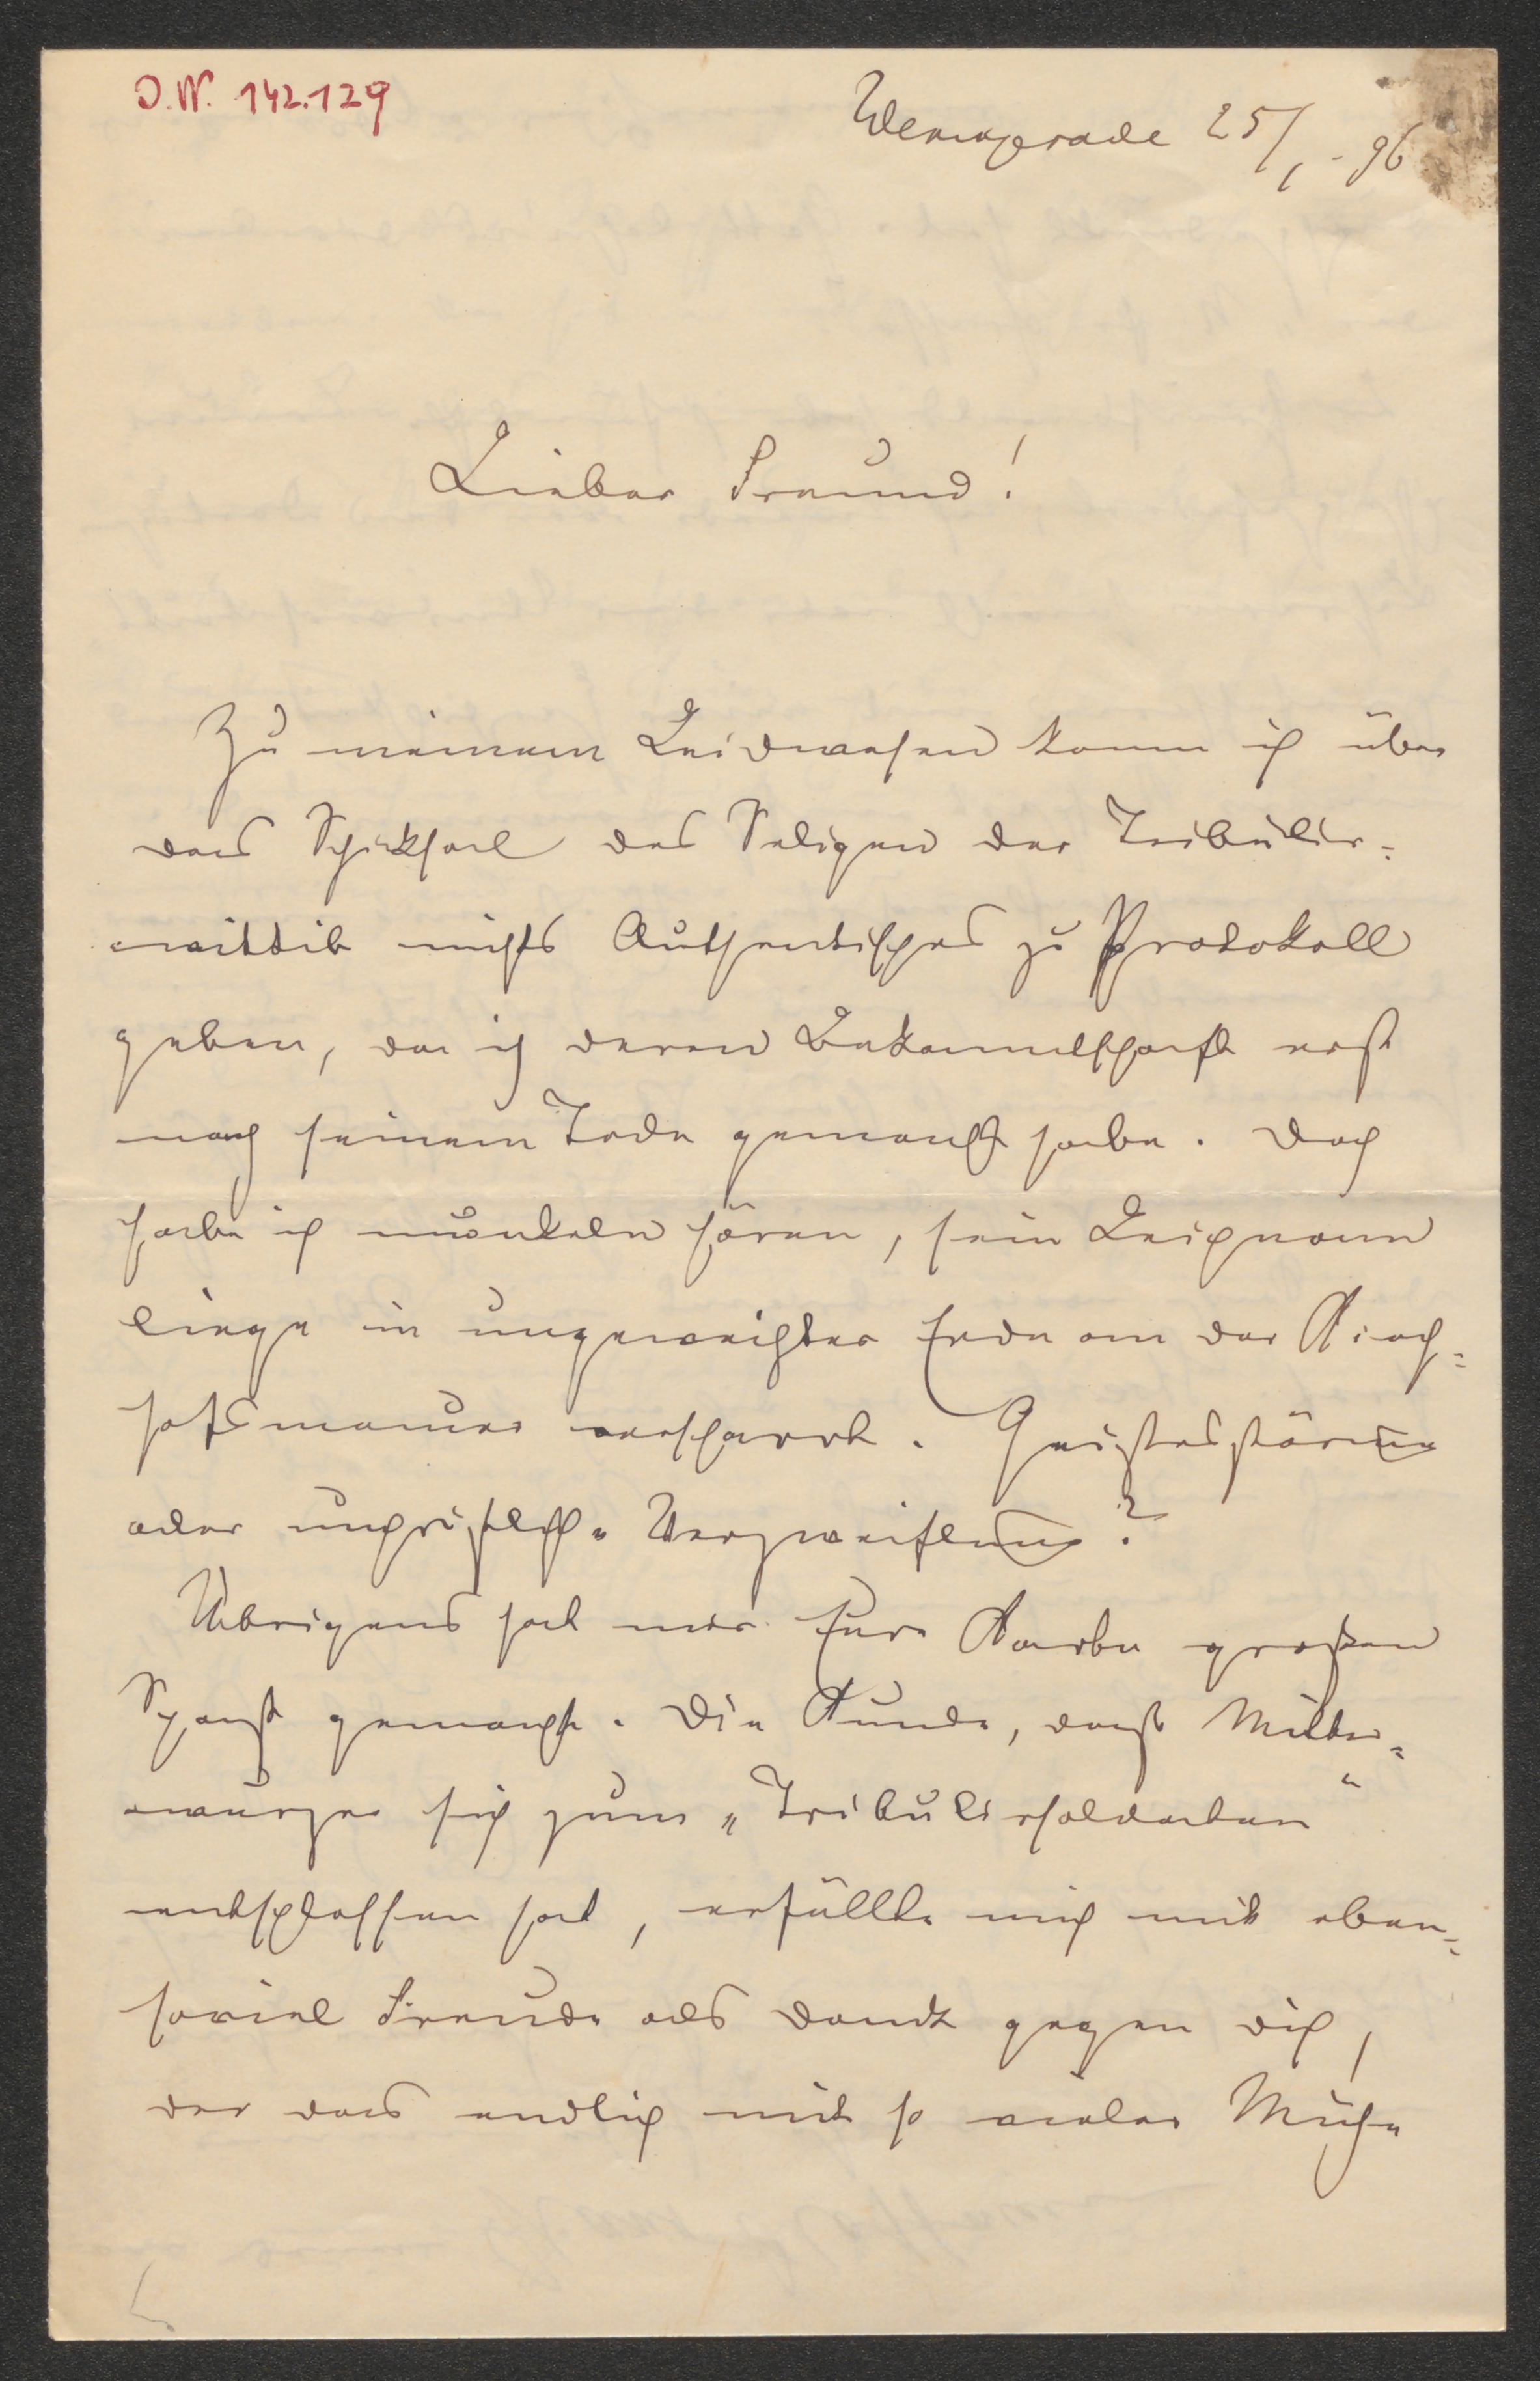 I.N. 142.129
Wernigerode 25/1.-96
Lieber Freund!
Zu meinem Leidwesen kann ich über
das Schicksal des Seligen der Tribulir=
wittib nichts Authentisches zu Protokoll
geben, da ich deren Bekanntschaft erst
nach seinem Tode gemacht habe. Doch
habe ich munkeln hören, sein Leichnam
liege in ungeweihter Erde an der Kirch=
hofsmauer verscharrt. Geistesstörung
oder unchristliche Verzweiflung?
Übrigens hat mir Eure Karte großen
Spaß gemacht. Die Kunde, daß Mitter=
wurzer sich zum „Tribulirsoldaten“
entschlossen hat, erfüllte mich mit eben=
soviel Freude als Dank gegen dich,
der das endlich mit so vieler Mühe